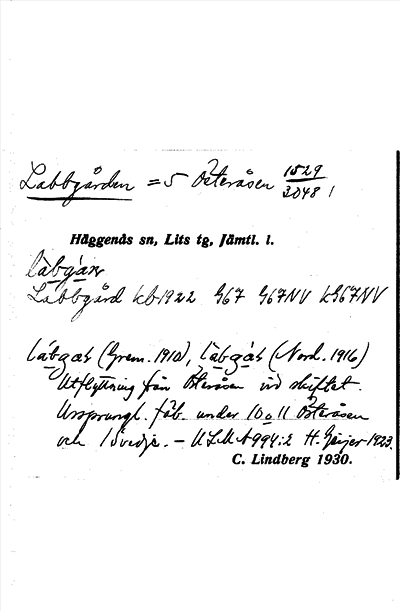 Labbgården = 5 Österåsen 1529/3048 1
Häggenås sn, Lits tg, Jämtl. l.
làbgàṛ
Labbgård kb 1922 G67 G67NV kG67NV
lábgaṛ (Grem. 1910), làbgàṛ (Nord. 1916)
Utflyttning från Österåsen vid skiftet.
Ursprungl. fäb. under 10 o 11 Österåsen
och 1 övedje. – ULMA 994:2 H. Geijer 1923.
C. Lindberg 1930.